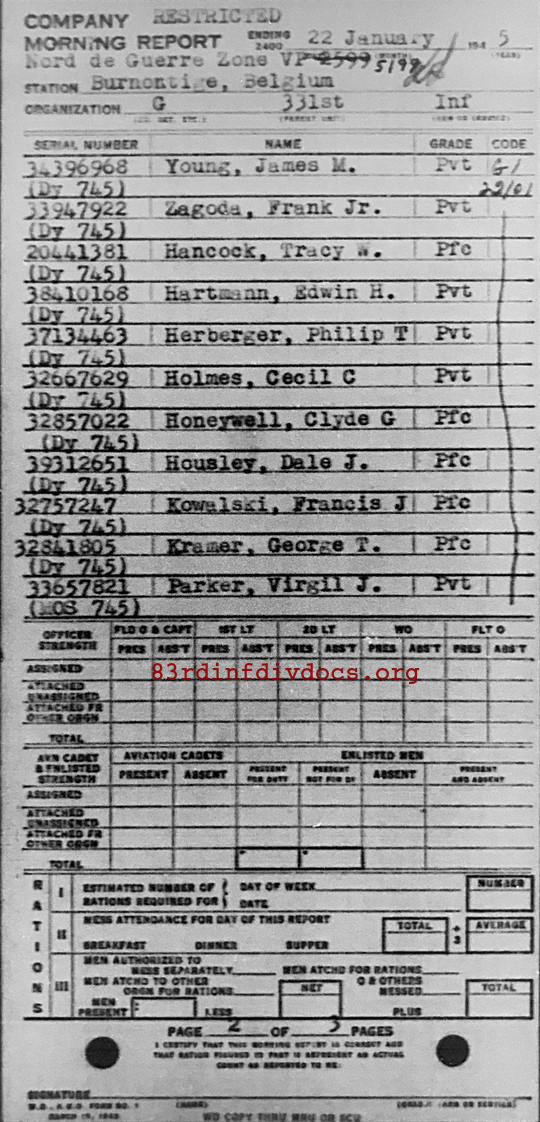 COMPANY RESTRICTED
MORNING REPORT ENDING 2400 22 January 194 5
Nord de Guerre Zone VP 2599 5199
STATION Burnontige, Belgium
ORGANIZATION G 331st Inf
SERIAL NUMBER NAME GRADE CODE
34396968 Young, James M. Pvt G1
(Dy 745) 22/01
33947922 Zagoda, Frank Jr. Pvt
(Dy 745)
20441381 Hancock, Tracy W. Pfc
(Dy 745)
38410168 Hartmann, Edwin H. Pvt
(Dy 745)
37134463 Herberger, Philip T Pvt
(Dy 745)
32667629 Holmes, Cecil C Pvt
(Dy 745)
32857022 Honeywell, Clyde G Pfc
(Dy 745)
39312651 Housley, Dale J. Pfc
(Dy 745)
32757247 Kowalski, Francis J Pfc
(Dy 745)
32841805 Kramer, George T. Pfc
(Dy 745)
33657821 Parker, Virgil J. Pvt
(MOS 745)
OFFICER STRENGTH FLD O & CAPT 1ST LT 2D LT WO FLT O
PRES ABS'T PRES ABS'T PRES ABS'T PRES ABS'T PRES ABS'T
ASSIGNED
83rdinfdivdocs.org
ATTACHED UNASSIGNED
ATTACHED FR OTHER ORGN
TOTAL
AVN CADET & ENLISTED STRENGTH AVIATION CADETS ENLISTED MEN
PRESENT ABSENT PRESENT FOR DUTY PRESENT NOT FOR DY ABSENT PRESENT AND ABSENT
ASSIGNED
ATTACHED UNASSIGNED
ATTACHED FR OTHER ORGN
TOTAL
RATIONS
I ESTIMATED NUMBER OF RATIONS REQUIRED FOR DAY OF WEEK DATE NUMBER
II MESS ATTENDANCE FOR DAY OF THIS REPORT TOTAL ÷ 3 AVERAGE
BREAKFAST DINNER SUPPER
III MEN AUTHORIZED TO MESS SEPARATELY MEN ATCHD FOR RATIONS
MEN ATCHD TO OTHER ORGN FOR RATIONS NET O & OTHERS MESSED TOTAL
MEN PRESENT LESS PLUS
PAGE 2 OF 3 PAGES
I CERTIFY THAT THIS MORNING REPORT IS CORRECT AND
THAT RATION FIGURES IN PART III REPRESENT AN ACTUAL
COUNT AS REPORTED TO ME:
SIGNATURE
W.D., A.G.O. FORM NO. 1 (NAME) (GRADE) (ARM OR SERVICE)
MARCH 15, 1943
WD COPY THRU MRU OR SCU